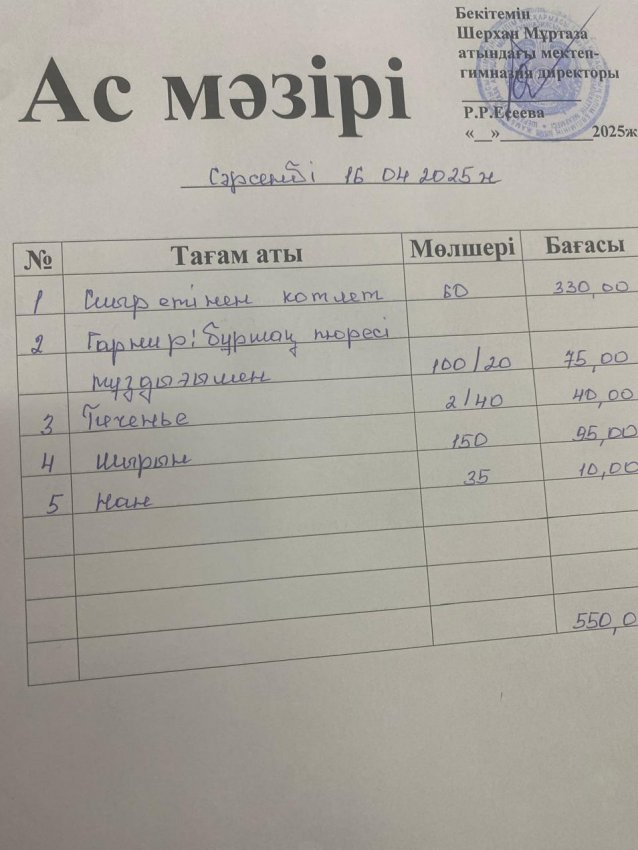 Бекітемін
Шерхан Мұртаза
атындағы мектеп-
гимназия директоры
Р.Р.Есеева
«__»____________2025ж
Ас мәзірі
Сәрсенбі 16 04 2025 ж
№ Тағам аты Мөлшері Бағасы
1 Сиыр етінен котлет 60 330,00
2 Гарнир: бұршақ пюресі
тұздығымен 100/20 75,00
3 Печенье 2/40 40,00
4 Шырын 150 95,00
5 Нан 35 10,00
550,0